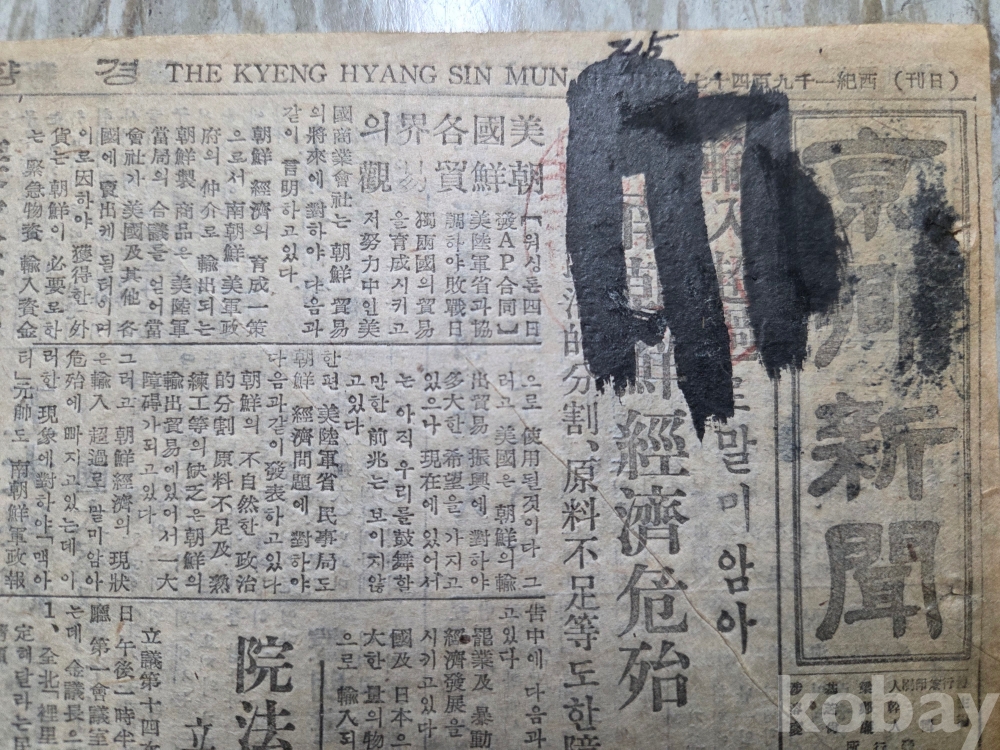 (日刊) 西紀一千九百四十七
THE KYENG HYANG SIN MUN
경향
215
京鄕新聞
말미암아
鮮經濟危殆
的分割、原料不足等도한
美國各界의
朝鮮貿易觀
【워싱톤四日
發AP合同】
美陸軍省과協
調하야敗戰日
獨兩國의貿易
을育成시키고
저努力中인美
國商業會社는朝鮮貿易
의將來에對하야다음과
같이言明하고있다
朝鮮經濟의育成一策
으로서南朝鮮美軍政
府의仲介로輸出되는
朝鮮製商品은美陸軍
當局의合議를얻어當
會社가美國及其他各
國에賣出케될터이며
이로因하야獲得한外
貨는朝鮮이必要로하
는緊急物資輸入資金
으로使用될것이다그
러고美國은朝鮮의輸
出貿易振興에對하야
多大한希望을가지고
있으나現在에있어서
는아직우리를鼓舞할
만한前兆는보이지않
고있다
한편美陸軍省民事局도
朝鮮經濟問題에對하야
다음과같이發表하고있다
朝鮮의不自然한政治
的分割原料不足及熟
練工等의缺乏은朝鮮의
輸出貿易에있어서一大
障碍가되고있다
그러고朝鮮經濟의現狀
은輸入超過로말미암아
危殆에빠지고있는데이
러한現象에對하야「맥아
더」元帥도南朝鮮軍政報
告中에다음과
고있다
罷業及暴動
經濟發展을
시키고있다
國及日本으
大한量의物
으로輸入되
院法
立
立議第十四次
日午後一時半
廳第一會議室
는데金議長으
1、全北「裡里
定해달라는民
kobay